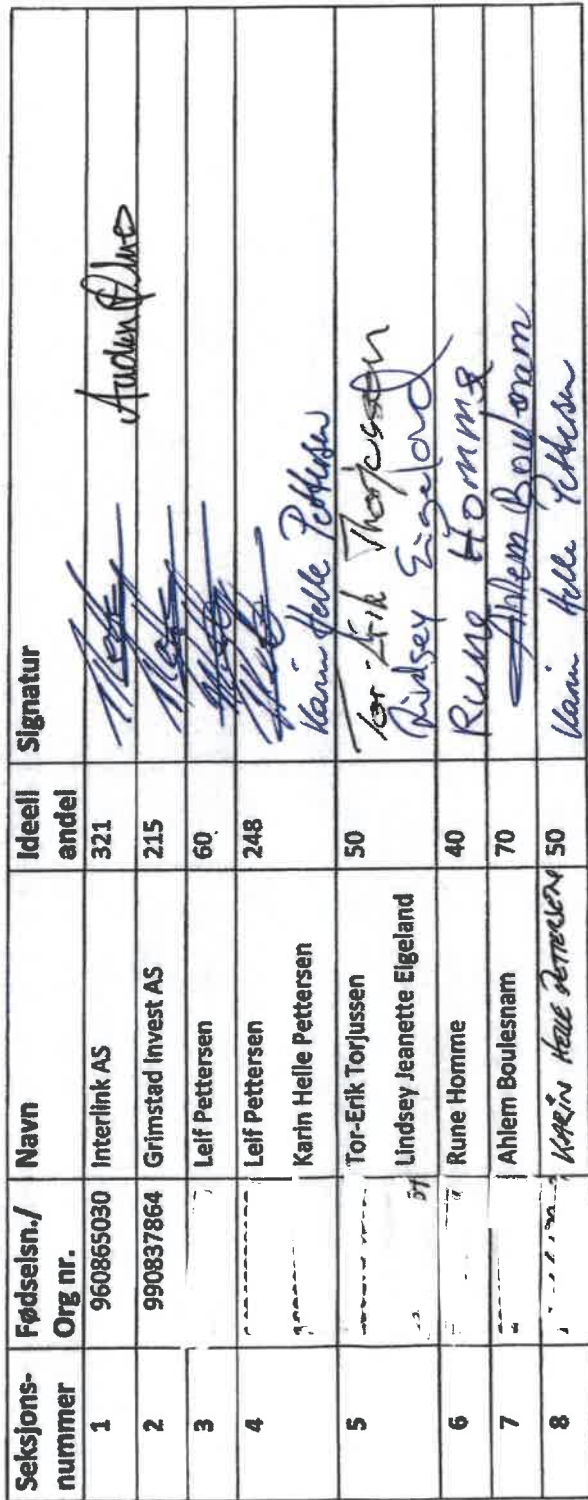 Seksjons-nummer Fødselsn./Org nr. Navn Ideell andel Signatur
1 960865030 Interlink AS 321
2 990837864 Grimstad Invest AS 215
3 Leif Pettersen 60
4 Leif Pettersen 248
Karin Helle Pettersen Karin Helle Pettersen
5 Tor-Erik Torjussen 50 Tor-Erik Thorjussen
Lindsey Jeanette Eigeland Lindsey Eigeland
6 Rune Homme 40 Rune Homme
7 Ahlem Boulesnam 70 Ahlem
8 KARIN HELLE PETTERSEN 50 Karin Helle Pettersen